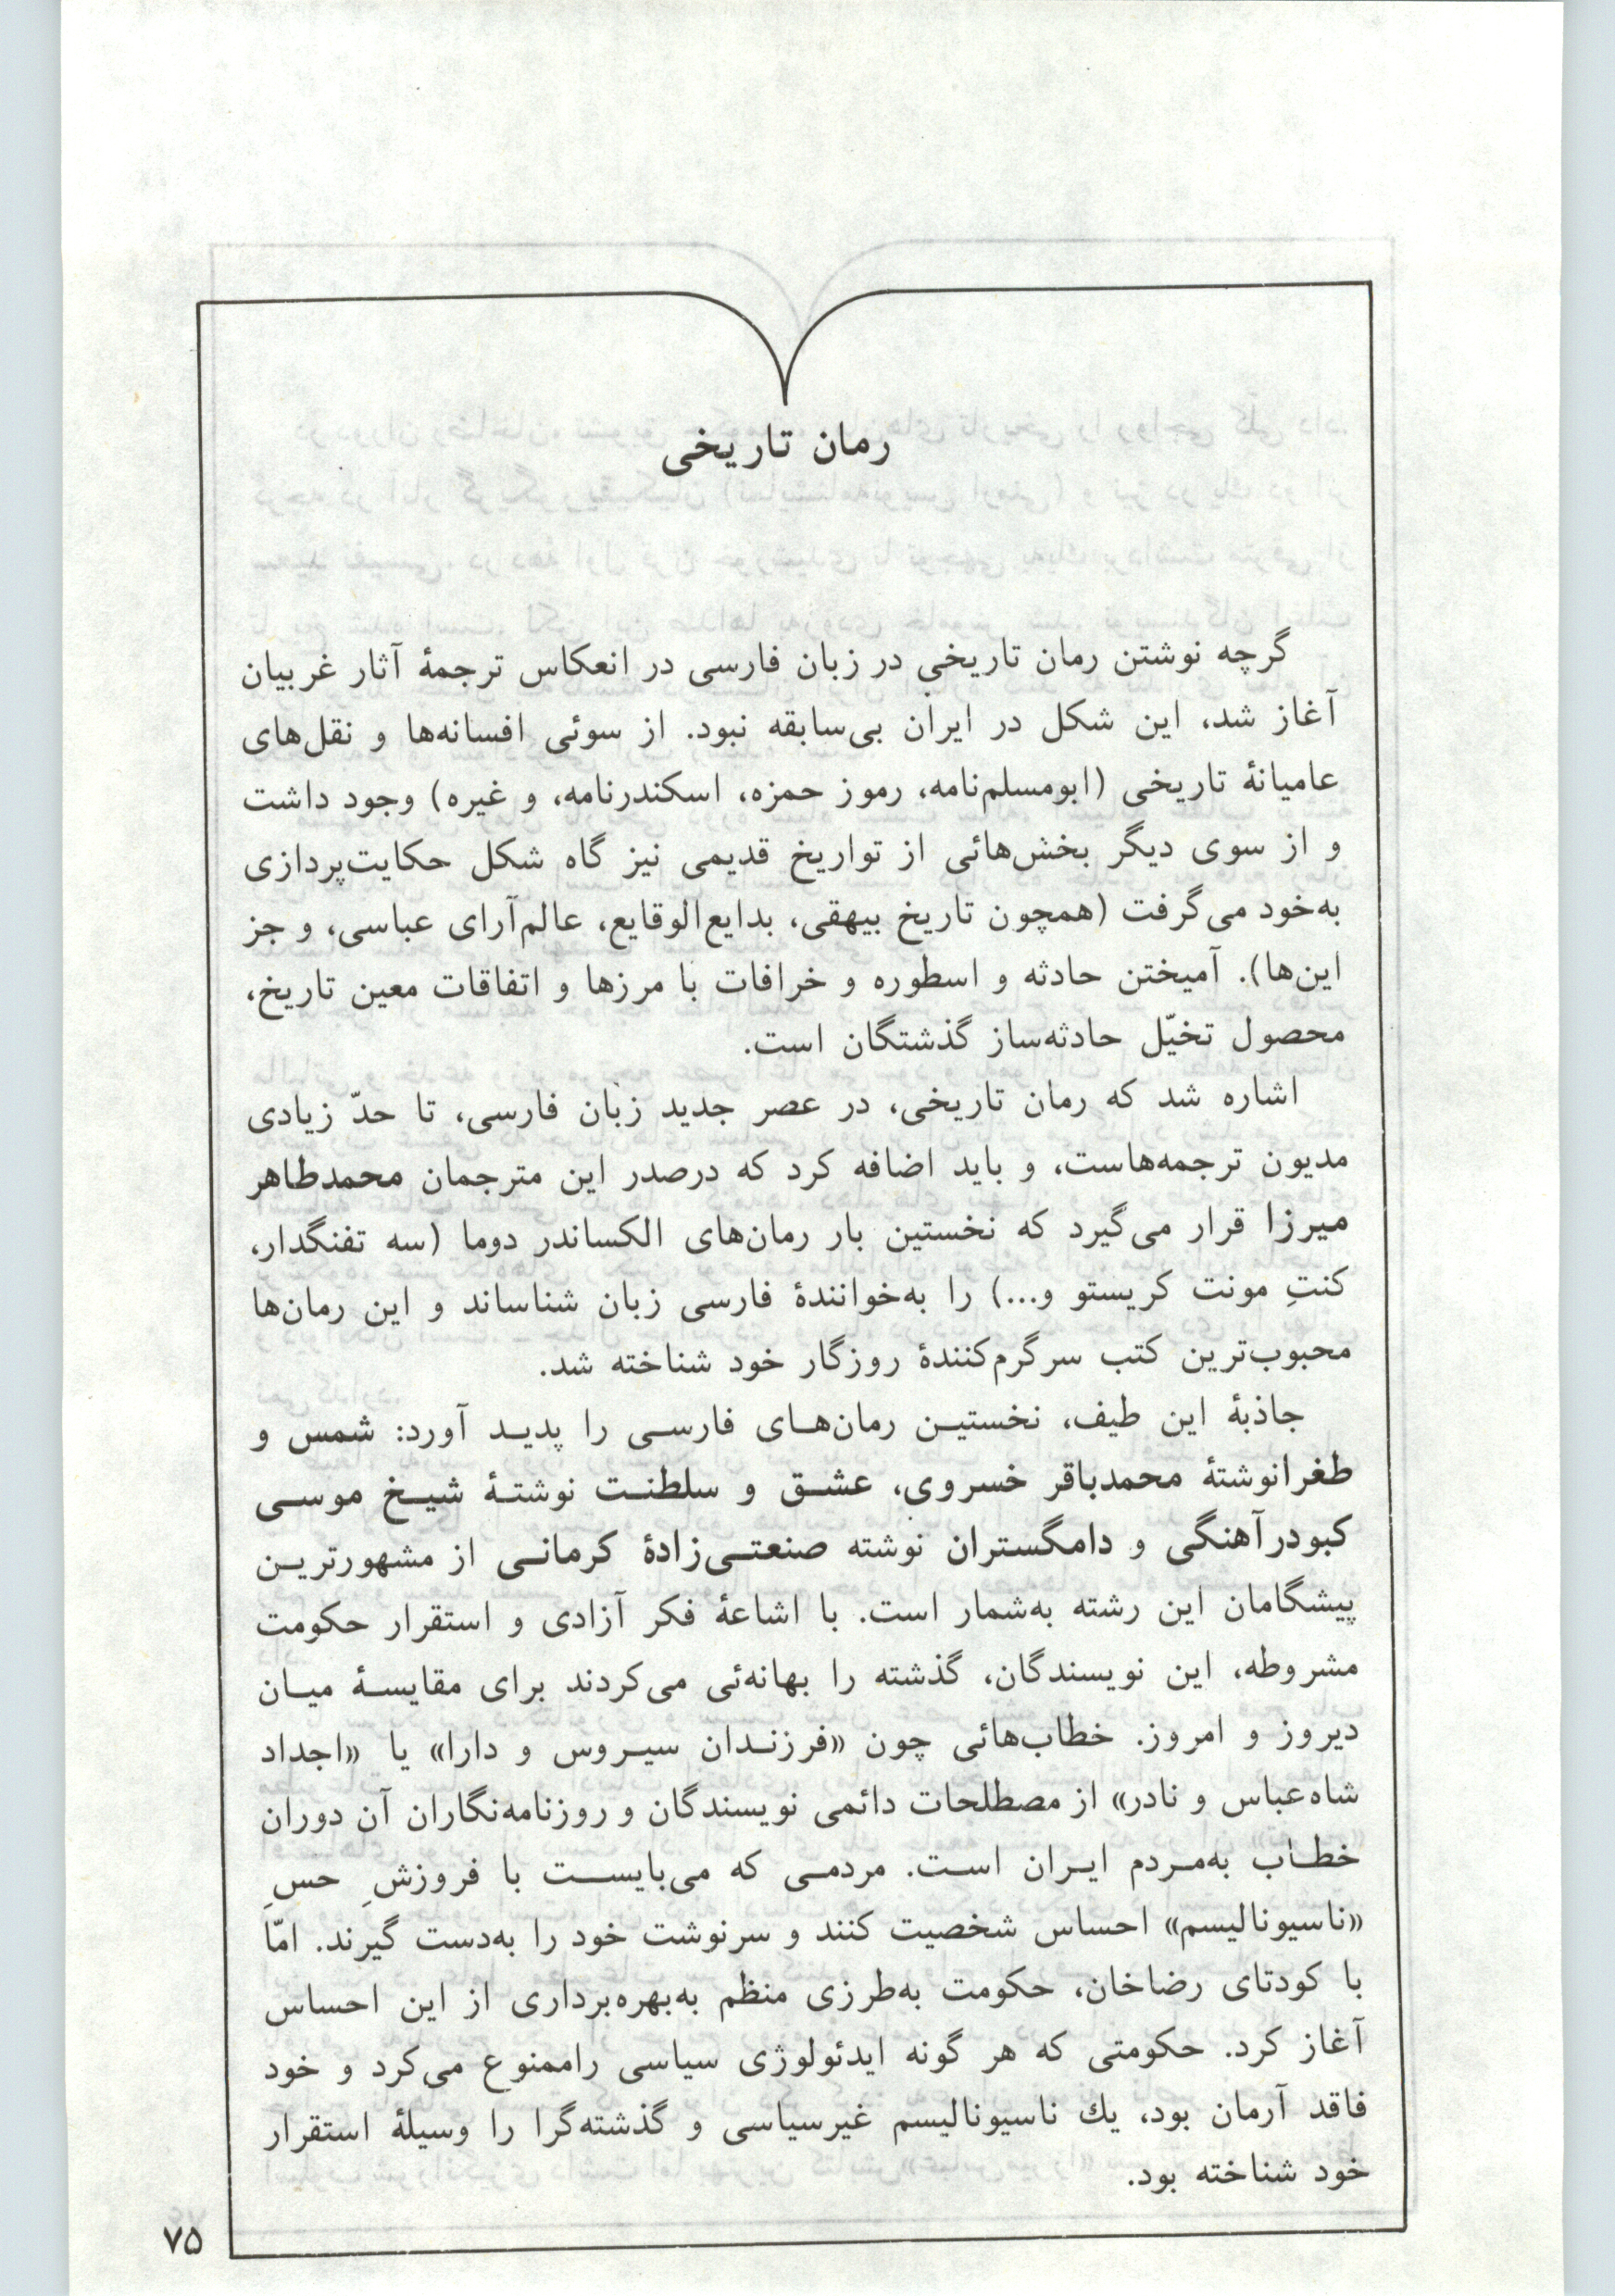 رمان تاریخی
گرچه نوشتن رمان تاریخی در زبان فارسی در انعکاس ترجمهٔ آثار غربیان
آغاز شد، این شکل در ایران بی‌سابقه نبود. از سوئی افسانه‌ها و نقل‌های
عامیانهٔ تاریخی (ابومسلم‌نامه، رموز حمزه، اسکندرنامه، و غیره) وجود داشت
و از سوی دیگر بخش‌هائی از تواریخ قدیمی نیز گاه شکل حکایت‌پردازی
به‌خود می‌گرفت (همچون تاریخ بیهقی، بدایع‌الوقایع، عالم‌آرای عباسی، و جز
این‌ها). آمیختن حادثه و اسطوره و خرافات با مرزها و اتفاقات معین تاریخ،
محصول تخیّل حادثه‌ساز گذشتگان است.
اشاره شد که رمان تاریخی، در عصر جدید زبان فارسی، تا حدّ زیادی
مدیون ترجمه‌هاست، و باید اضافه کرد که درصدر این مترجمان محمدطاهر
میرزا قرار می‌گیرد که نخستین بار رمان‌های الکساندر دوما (سه تفنگدار،
کنتِ مونت کریستو و...) را به‌خوانندهٔ فارسی زبان شناساند و این رمان‌ها
محبوب‌ترین کتب سرگرم‌کنندهٔ روزگار خود شناخته شد.
جاذبهٔ این طیف، نخستین رمان‌های فارسی را پدید آورد: شمس و
طغرانوشتهٔ محمدباقر خسروی، عشق و سلطنت نوشتهٔ شیخ موسی
کبودرآهنگی و دامگستران نوشته صنعتی‌زادهٔ کرمانی از مشهورترین
پیشگامان این رشته به‌شمار است. با اشاعهٔ فکر آزادی و استقرار حکومت
مشروطه، این نویسندگان، گذشته را بهانه‌ئی می‌کردند برای مقایسهٔ میان
دیروز و امروز. خطاب‌هائی چون «فرزندان سیروس و دارا» یا «اجداد
شاه‌عباس و نادر» از مصطلحات دائمی نویسندگان و روزنامه‌نگاران آن دوران
خطاب به‌مردم ایران است. مردمی که می‌بایست با فروزشِ حسِ
«ناسیونالیسم» احساس شخصیت کنند و سرنوشت خود را به‌دست گیرند. امّا
با کودتای رضاخان، حکومت به‌طرزی منظم به‌بهره‌برداری از این احساس
آغاز کرد. حکومتی که هر گونه ایدئولوژی سیاسی راممنوع می‌کرد و خود
فاقد آرمان بود، یك ناسیونالیسم غیرسیاسی و گذشته‌گرا را وسیلهٔ استقرار
خود شناخته بود.
۷۵